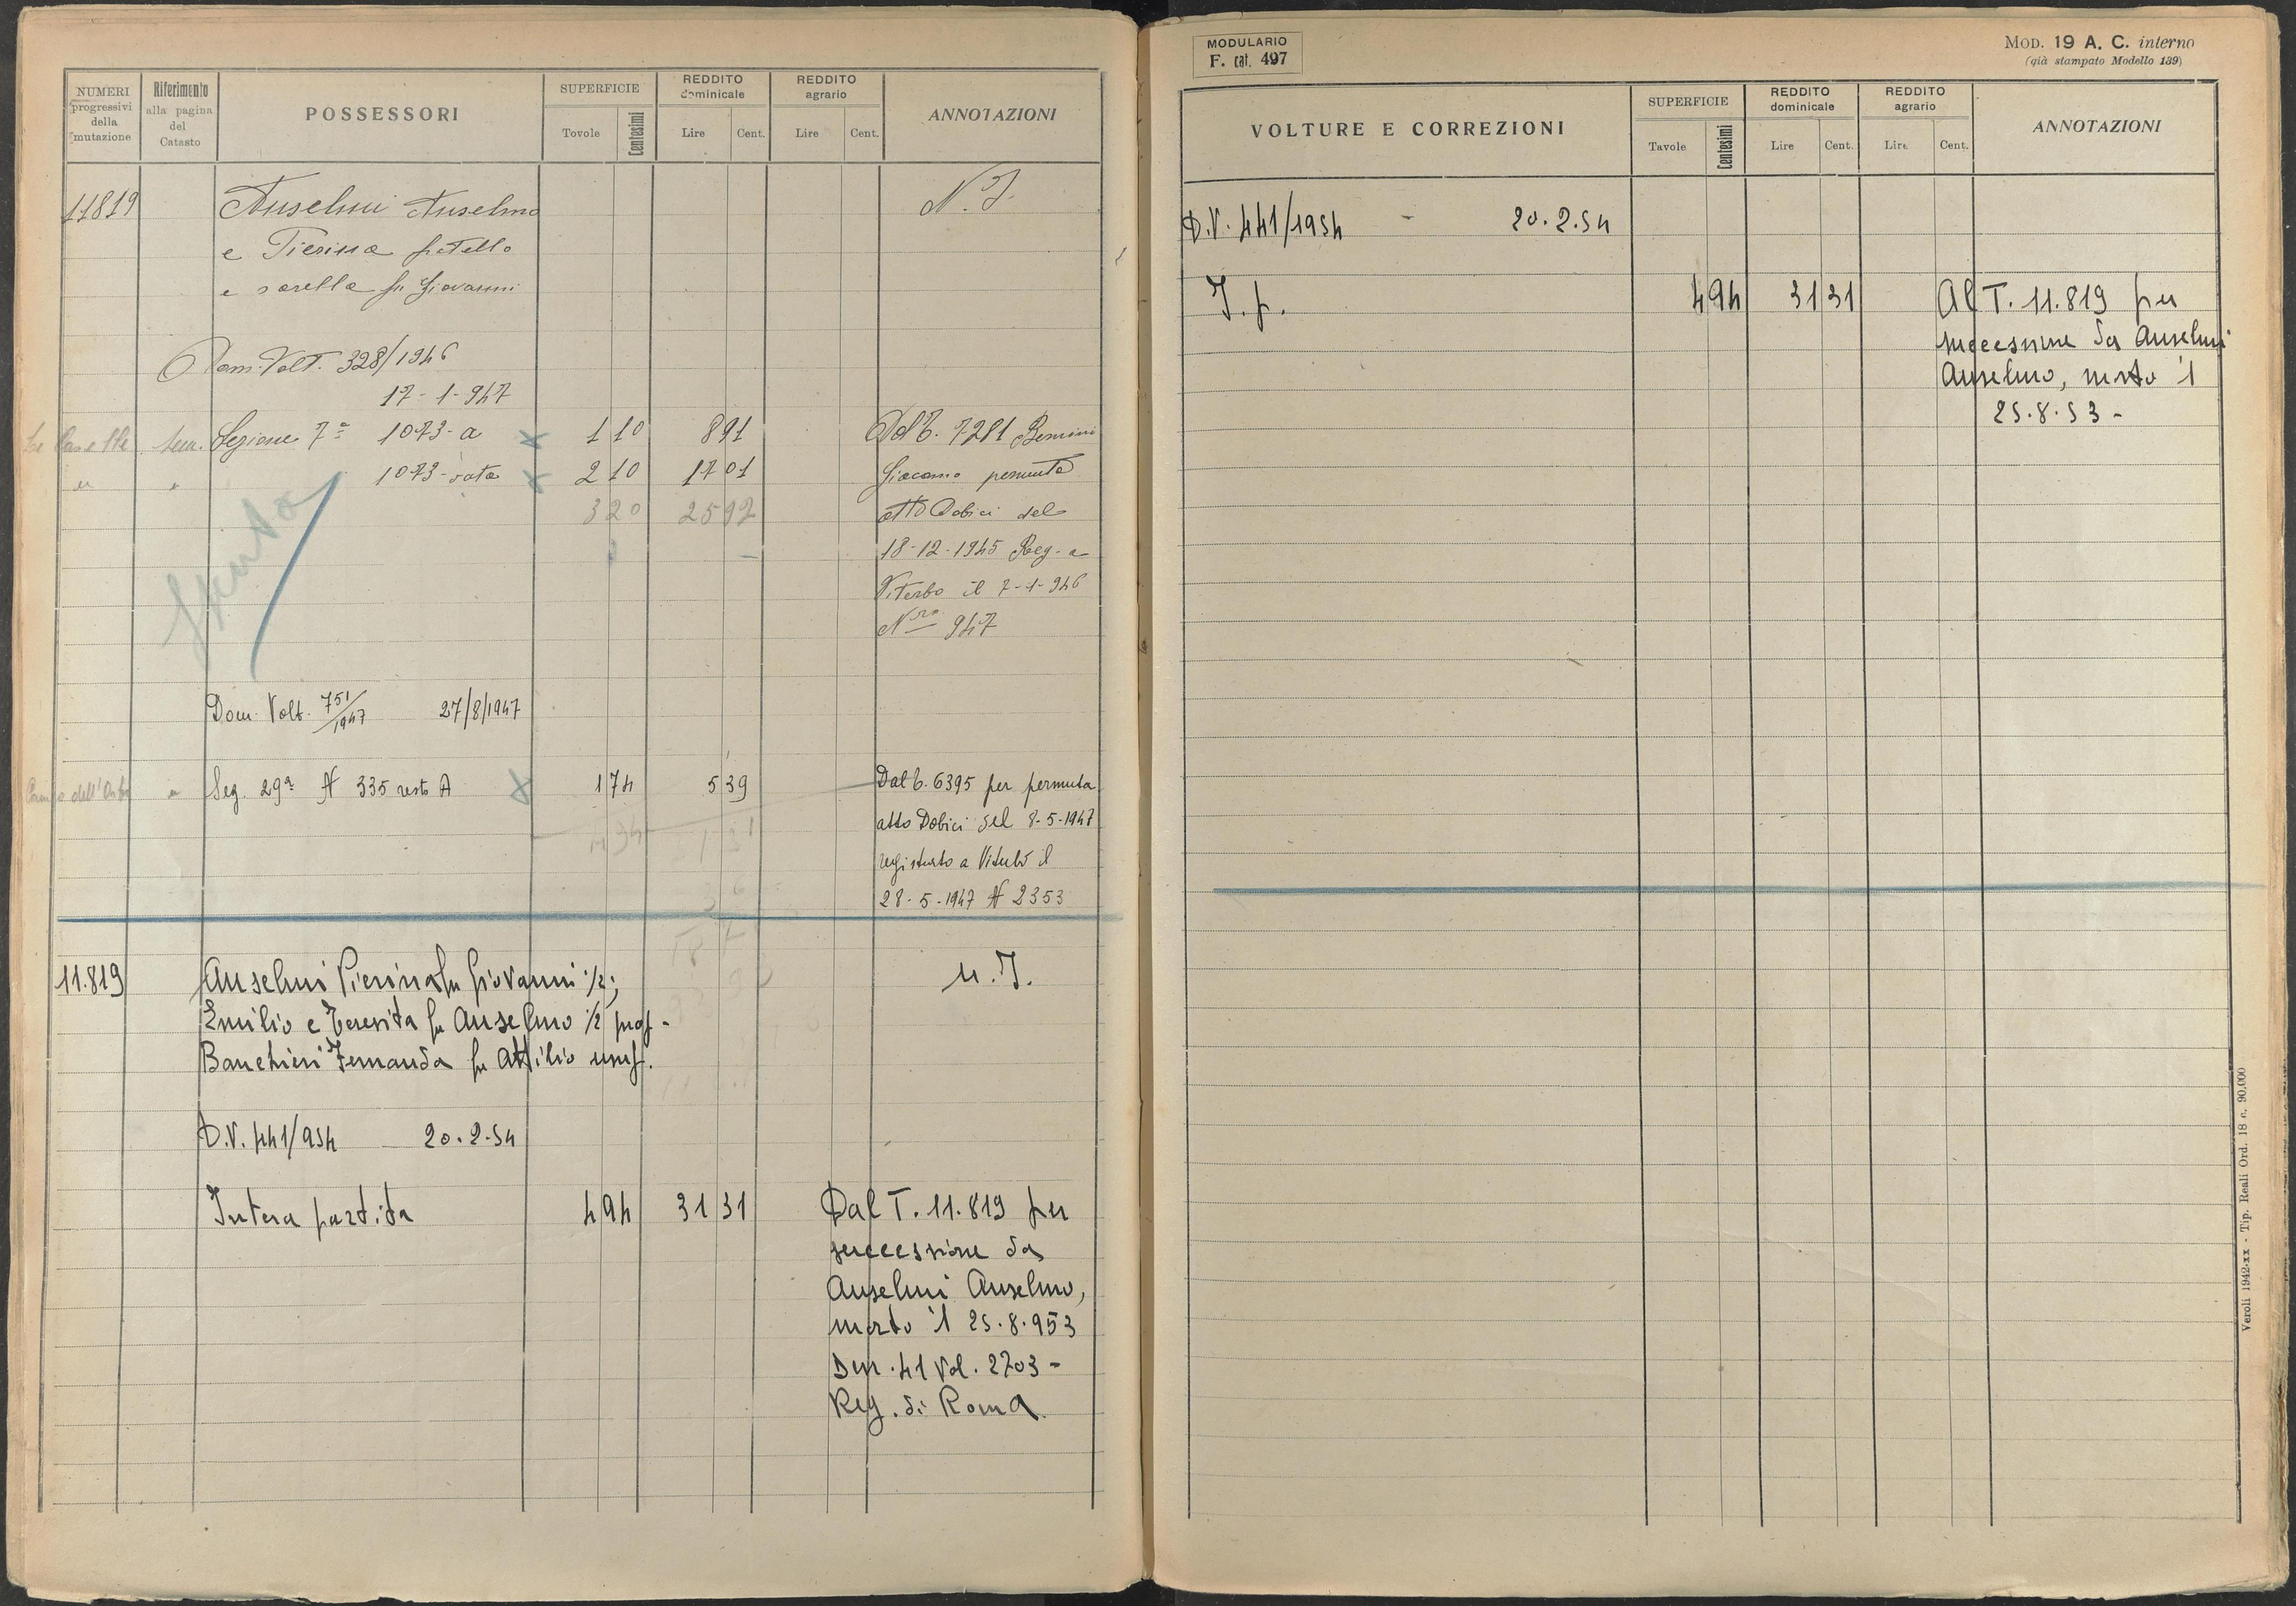 NUMERI progressivi della mutazione
Riferimento alla pagina del Catasto
POSSESSORI
SUPERFICIE
Tovole Centesimi
REDDITO dominicale
Lire Cent.
REDDITO agrario
Lire Cent.
ANNOTAZIONI
11819 Anselmi Anselmo N. I.
e Pierina fratello
e sorella fu Giovanni
Dom. Volt. 328/1946
17-1-947
Le Caselle Sem. Sezione 7ª 1073-a 1 10 8 91 Dal b. 7281 Bernini
" " 1073-rata 2 10 17 01 Giacomo permuta
3 20 25 92 atto Dobici del
18-12-1945 Reg. a
Viterbo il 7-1-946
Nro 947
Spento
Dom. Volt. 751/1947 27/8/1947
Campo dell'Orto " Sez. 29ª N 335 resto A 1 74 5 39 Dal b. 6395 per permuta
4 94 31 31 atto Dobici del 8-5-1947
registrato a Viterbo il
28-5-1947 N 2353
11.819 Anselmi Pierina fu Giovanni 1/2; n. I.
Emilio e Teresita fu Anselmo 1/2 prof-
Banchieri Fernanda fu Attilio usuf.
D.V. 441/954 20.2.54
Intera partita 4 94 31 31 Dal T. 11.819 per
successione da
Anselmi Anselmo,
morto il 25.8.953
Den. 41 Vol. 2703-
Reg. di Roma
MODULARIO
F. cat. 497
MOD. 19 A. C. interno
(già stampato Modello 139)
VOLTURE E CORREZIONI
SUPERFICIE
Tavole Centesimi
REDDITO dominicale
Lire Cent.
REDDITO agrario
Lire Cent.
ANNOTAZIONI
D.V. 441/1954 - 20.2.54
I. p. 4 94 31 31 Al T. 11.819 per
successione da Anselmi
Anselmo, morto il
25.8.53-
Veroli 1942-XX - Tip. Reali Ord. 18 c. 90.000